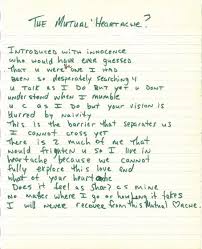 The Mutual Heartache?
Introduced with innocence
who would have ever guessed
that u were the one I had
been so desperately searching 4
u talk as I do But yet u dont
understand when I mumble
u c as I do but your vision is
blurred by naivity
This is the barrier that separates us
I cannot cross yet
there is 2 much of me that
would frighten u so I live in
heartache because we cannot
fully explore this love end
what of your heartache
Does it feel as sharp as mine
no matter where I go or how long it takes
I will never recover from this Mutual ache.